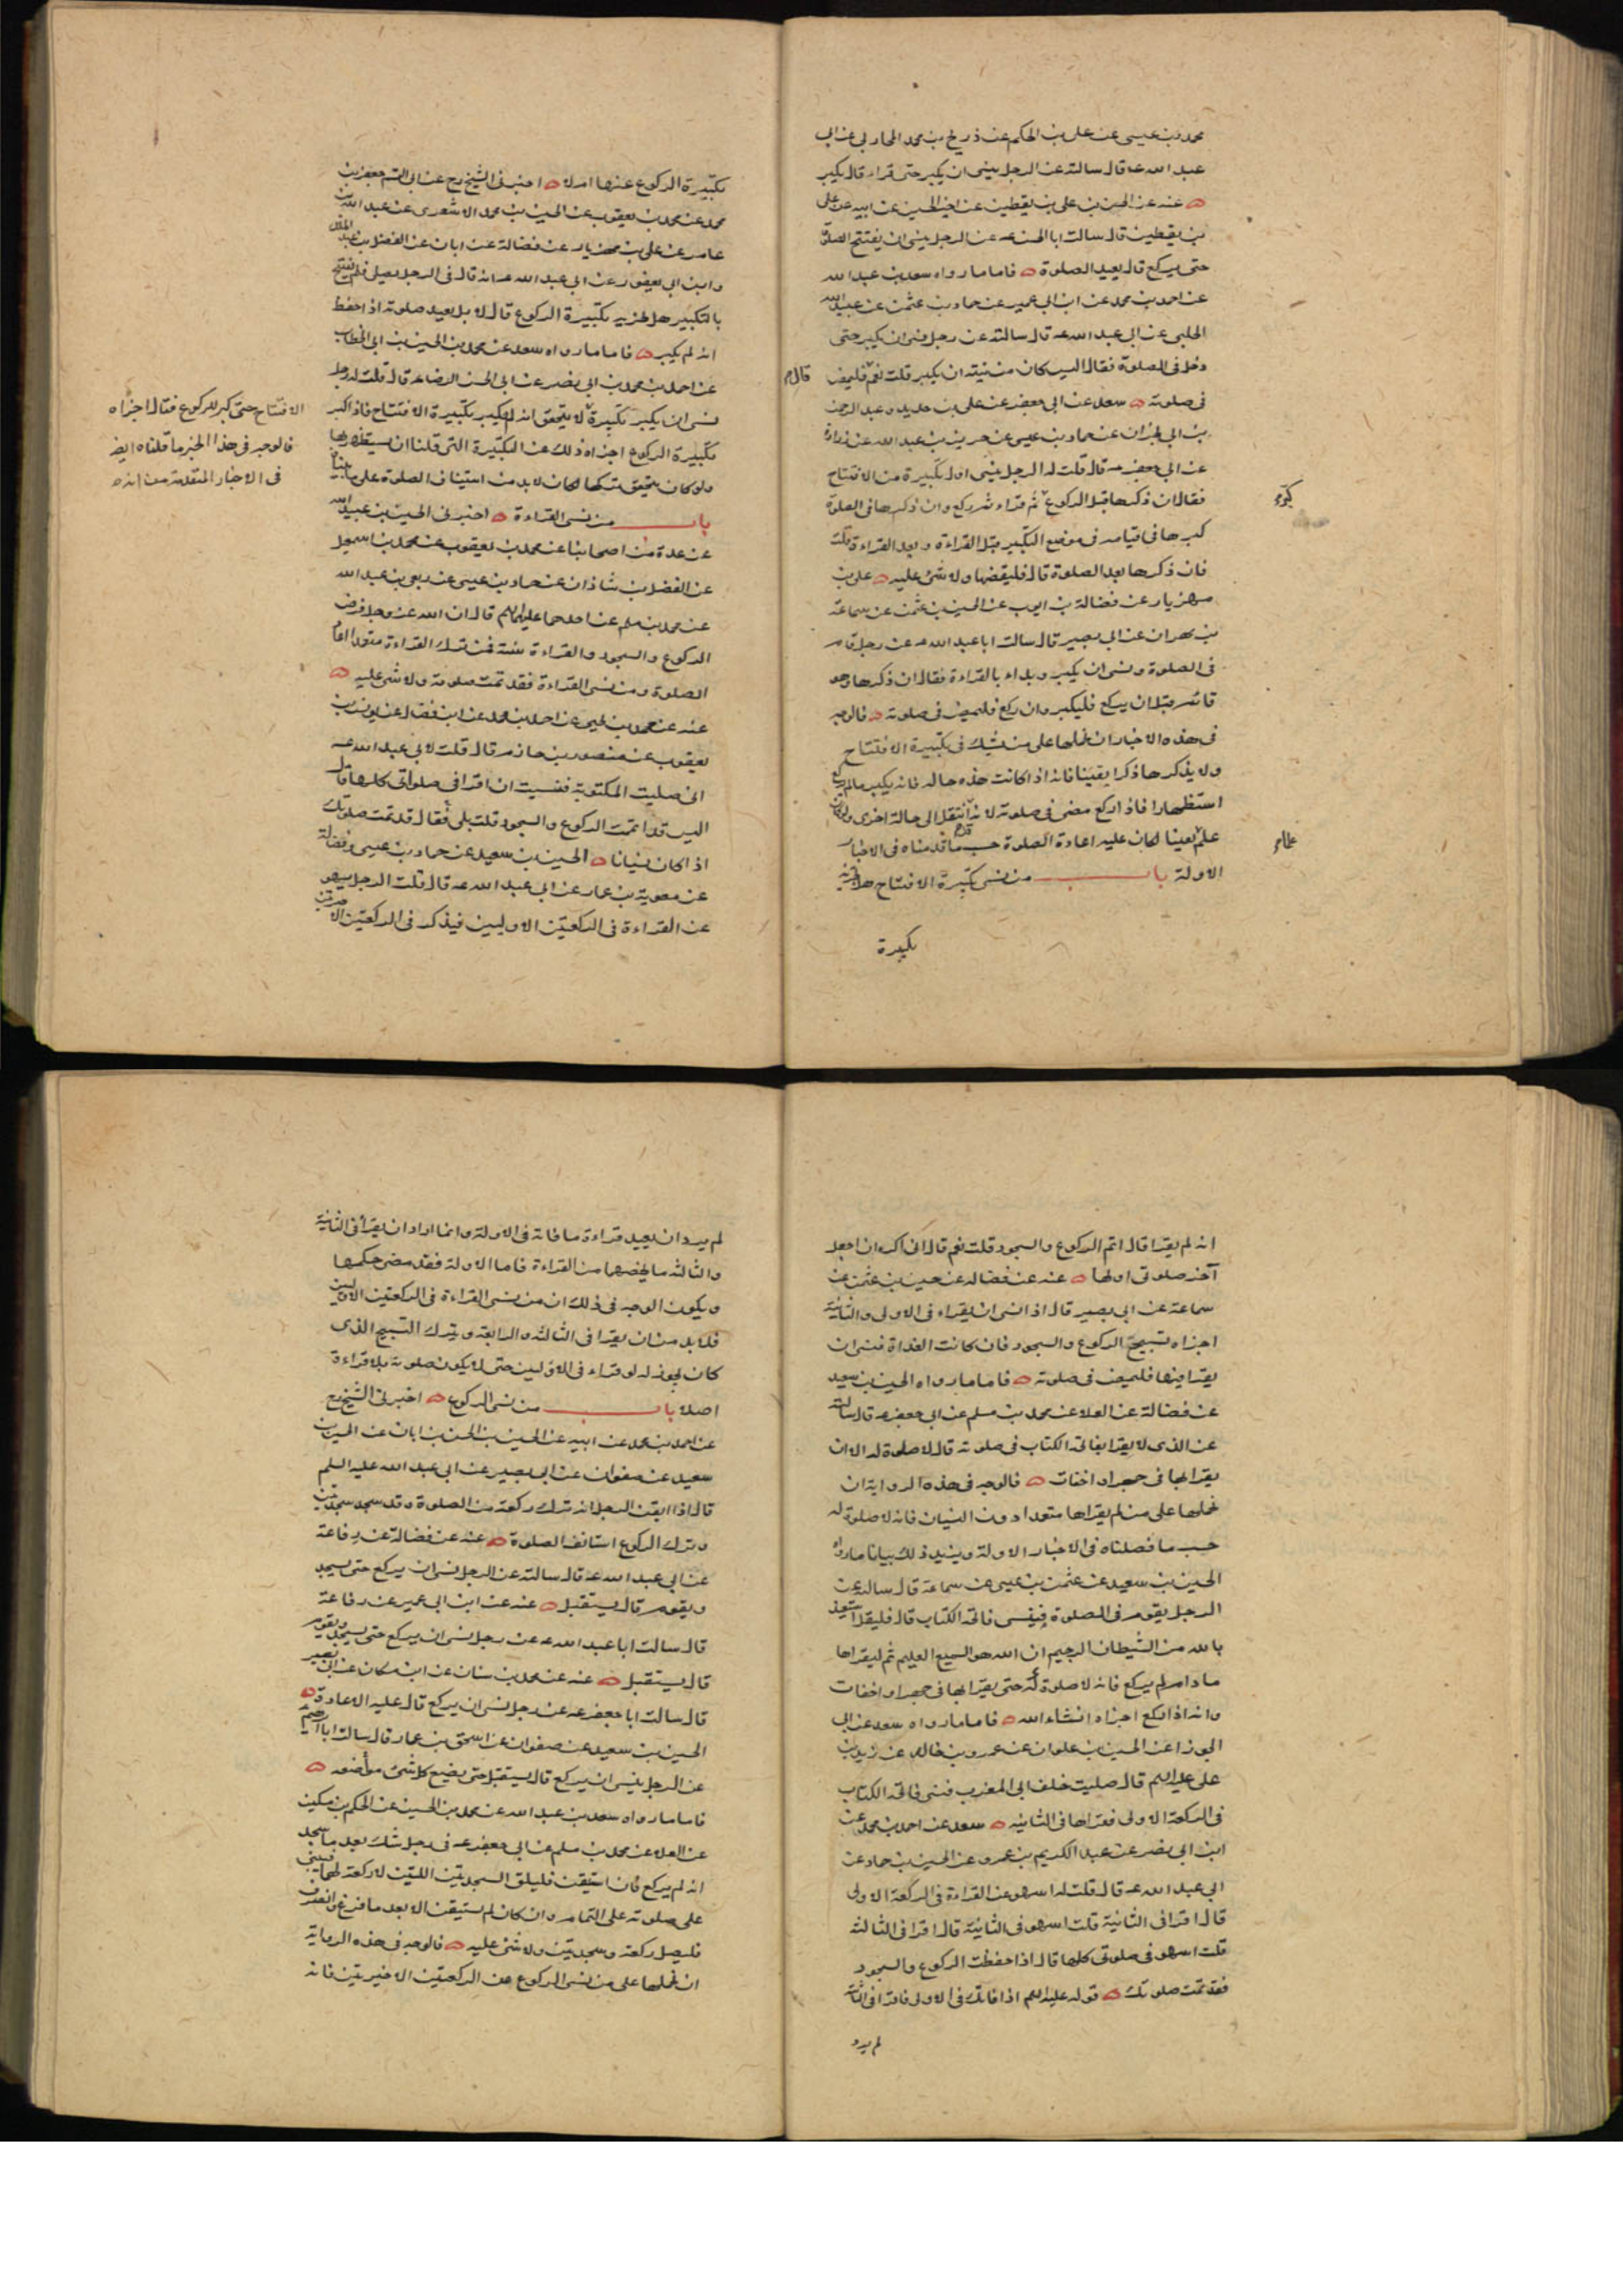 محمد بن عيسى عن على بن الحكم عن ذريح بن محمد المحاربى عن ابى
عبد الله عه قال سالته عن الرجل ينسى ان يكبر حتى قراء قال يكبر
عنه عن الحسن بن على بن يقطين عن اخيه الحسين عن ابيه عن على
بن يقطين قال سالت ابا الحسن عه عن الرجل ينسى ان يفتتح الصلوة
حتى يركع قال يعيد الصلوة فاما ما رواه سعد بن عبد الله
عن احمد بن محمد عن ابن ابى عمير عن حماد بن عثمن عن عبيد الله
الحلبى عن ابى عبد الله عه قال سالته عن رجل نسى ان يكبر حتى
دخل فى الصلوة فقال اليس كان من نيته ان يكبر قلت نعم فليمض
قال
فى صلوته سعد عن ابى جعفر عن على بن حديد و عبد الرحمن
بن ابى نجران عن حماد بن عيسى عن حريز بن عبد الله عن زرارة
عن ابى جعفر عه قال قلت له الرجل ينسى اول تكبيرة من الافتتاح
فقال ان ذكرها قبل الركوع ثم قراء ثم ركع وان ذكرها فى الصلوة
كبر
كبرها فى قيامه فى موضع التكبير قبل القراءة و بعد القراءة قلت
فان ذكرها بعد الصلوة قال فليقضها ولا شئ عليه على بن
مهزيار عن فضالة بن ايوب عن الحسين بن عثمن عن سماعة
بن مهران عن ابى بصير قال سالت ابا عبد الله عه عن رجل قام
فى الصلوة ونسى ان يكبر و بداء بالقراءة فقال ان ذكرها وهو
قائم قبل ان يركع فليكبر وان ركع فليمض فى صلوته فالوجه
فى هذه الاخبار ان نحملها على من يشك فى تكبيرة الافتتاح
ولا يذكرها ذكرا يقينا فانه اذا كانت هذه حاله فانه يكبر مالم يركع
استظهارا فاذا ركع مضى فى صلوته لانه انتقل الى حالة اخرى ولو كان
علم يقينا لكان عليه اعادة الصلوة حسب ما قدمناه فى الاخبار
الاولة باب من نسى تكبيرة الافتتاح هل يجزيه
تكبيرة
تكبيرة الركوع عنها ام لا اخبرنى الشيخ رح عن ابى القسم جعفر بن
محمد عن محمد بن يعقوب عن الحسين بن محمد الاشعرى عن عبد الله بن
عامر عن على بن مهزيار عن فضالة عن ابان عن الفضل بن عبد الملك
وابن ابى يعفور عن ابى عبد الله عه انه قال فى الرجل يصلى فلم يفتتح
بالتكبير هل يجزيه تكبيرة الركوع قال لا بل يعيد صلوته اذا حفظ
انه لم يكبر فاما ما رواه سعد عن محمد بن الحسين بن ابى الخطاب
عن احمد بن محمد بن ابى نصر عن ابى الحسن الرضا عه قال قلت له رجل
نسى ان يكبر تكبيرة لا يتحقق انه لم يكبر تكبيرة الافتتاح فاذا كبر
الافتتاح حتى كبر للركوع فقال اجزاه
فالوجه فى هذا الخبر ما قلناه ايضا
فى الاخبار المتقدمة من انه
تكبيرة الركوع اجزاه ذلك عن التكبيرة التى قلنا ان يستظهر بها
ولو كان يتحقق تركها لكان لابد من استيناف الصلوة على ما بيناه
باب من نسى القراءة اخبرنى الحسين بن عبيد الله
عن عدة من اصحابنا عن محمد بن يعقوب عن محمد بن اسمعيل
عن الفضل بن شاذان عن حماد بن عيسى عن ربعى بن عبد الله
عن محمد بن مسلم عن احدهما عليهما السلم قال ان الله عز وجل فرض
الركوع والسجود والقراءة سنة فمن ترك القراءة متعمدا اعاد
الصلوة ومن نسى القراءة فقد تمت صلوته ولا شئ عليه
عنه عن محمد بن يحيى عن احمد بن محمد عن ابن فضال عن يونس بن
يعقوب عن منصور بن حازم قال قلت لابى عبد الله عه
انى صليت المكتوبة فنسيت ان اقرا فى صلواتى كلها قال
اليس قد اتممت الركوع والسجود قلت بلى فقال قد تمت صلوتك
اذا كان نسيانا الحسين بن سعيد عن حماد بن عيسى وفضالة
عن معوية بن عمار عن ابى عبد الله عه قال قلت الرجل يسهو
عن القراءة فى الركعتين الاوليين فيذكر فى الركعتين الاخيرتين
انه لم يقرا قال اتم الركوع والسجود قلت نعم قال انى اكره ان اجعل
آخر صلوتى اولها عنه عن فضاله عن حسين بن عثمن عن
سماعة عن ابى بصير قال اذا نسى ان يقراء فى الاولى والثانية
اجزاه تسبيح الركوع والسجود فان كانت الغداة فنسى ان
يقرا فيها فليمض فى صلوته فاما ما رواه الحسين بن سعيد
عن فضالة عن العلا عن محمد بن مسلم عن ابى جعفر عه قال سالته
عن الذى لا يقرا بفاتحة الكتاب فى صلوته قال لا صلوة له الا ان
يقرا بها فى جهر او اخفات فالوجه فى هذه الرواية ان
نحملها على من لم يقراها متعمدا دون النسيان فانه لا صلوة له
حسب ما فصلناه فى الاخبار الاولة ويزيد ذلك بيانا ما رواه
الحسين بن سعيد عن عثمن بن عيسى عن سماعة قال سالته عن
الرجل يقوم فى الصلوة فينسى فاتحة الكتاب قال فليقل استعيذ
بالله من الشيطان الرجيم ان الله هو السميع العليم ثم ليقراها
ما دام لم يركع فانه لا صلوة له حتى يقرا بها فى جهر او اخفات
وانه اذا ركع اجزاه انشاء الله فاما ما رواه سعد عن ابى
الجوزا عن الحسين بن علوان عن عمرو بن خالد عن زيد بن
على عليه السلم قال صليت خلف ابى المغرب فنسى فاتحة الكتاب
فى الركعة الاولى فقراها فى الثانيه سعد عن احمد بن محمد عن
ابن ابى نصر عن عبد الكريم بن عمرو عن الحسين بن حماد عن
ابى عبد الله عه قال قلت له اسهو عن القراءة فى الركعة الاولى
قال اقرا فى الثانية قلت اسهو فى الثانية قال اقرا فى الثالثه
قلت اسهو فى صلوتى كلها قال اذا حفظت الركوع والسجود
فقد تمت صلوتك قوله عليه السلم اذا فاتك فى الاولى فاقرا فى الثانية
لم يرد
لم يرد ان يعيد قراءة ما فاته فى الاولة وانما اراد ان يقرأ فى الثانية
والثالثه ما يخصهما من القراءة فاما الاولة فقد مضى حكمها
ويكون الوجه فى ذلك ان من نسى القراءة فى الركعتين الاوليين
فلا بد من ان يقرا فى الثالثه والرابعة ويترك التسبيح الذى
كان يجوز له لو قراء فى الاوليين حتى لا يكون صلوته بلا قراءة
اصلا باب من نسى الركوع اخبرنى الشيخ رح
عن احمد بن محمد عن ابيه عن الحسين بن الحسن بن ابان عن الحسين بن
سعيد عن صفوان عن ابى بصير عن ابى عبد الله عليه السلم
قال اذا ايقن الرجل انه ترك ركعة من الصلوة وقد سجد سجدتين
وترك الركوع استانف الصلوة عنه عن فضالة عن رفاعة
عن ابى عبد الله عه قال سالته عن الرجل نسى ان يركع حتى يسجد
ويقوم قال يستقبل عنه عن ابن ابى عمير عن رفاعة
قال سالت ابا عبد الله عه عن رجل نسى ان يركع حتى يسجد ويقوم
قال يستقبل عنه عن محمد بن سنان عن ابن مسكان عن ابى بصير
قال سالت ابا جعفر عه عن رجل نسى ان يركع قال عليه الاعادة
الحسين بن سعيد عن صفوان عن اسحق بن عمار قال سالت ابا ابرهيم
عن الرجل ينسى ان يركع قال يستقبل حتى يضع كل شئ مواضعه
فاما ما رواه سعد بن عبد الله عن محمد بن الحسين عن الحكم بن مسكين
عن العلا عن محمد بن مسلم عن ابى جعفر عه فى رجل شك بعد ما سجد
انه لم يركع فان استيقن فليلق السجدتين اللتين لا ركعة لهما فيبنى
على صلوته على التمام وان كان لم يستيقن الا بعد ما فرغ وانصرف
فليصل ركعة وسجدتين ولا شئ عليه فالوجه فى هذه الرواية
ان نحملها على من نسى الركوع عن الركعتين الاخيرتين فانه